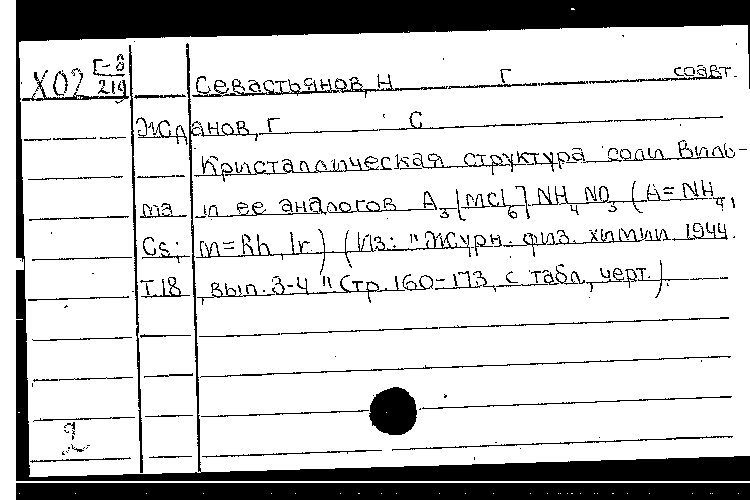 Х02 Г-8/219
Севастьянов, Н Г соавт.
Жданов, Г С
Кристаллическая структура соли Виль-
ма и ее аналогов A₃[MCl₆]NH₄NO₃ (A=NH₄,
Cs; M=Rh, Ir.) (Из: "Журн. физ. химии. 1944.
Т.18, вып. 3-4" Стр. 160-173, с табл., черт.).
2